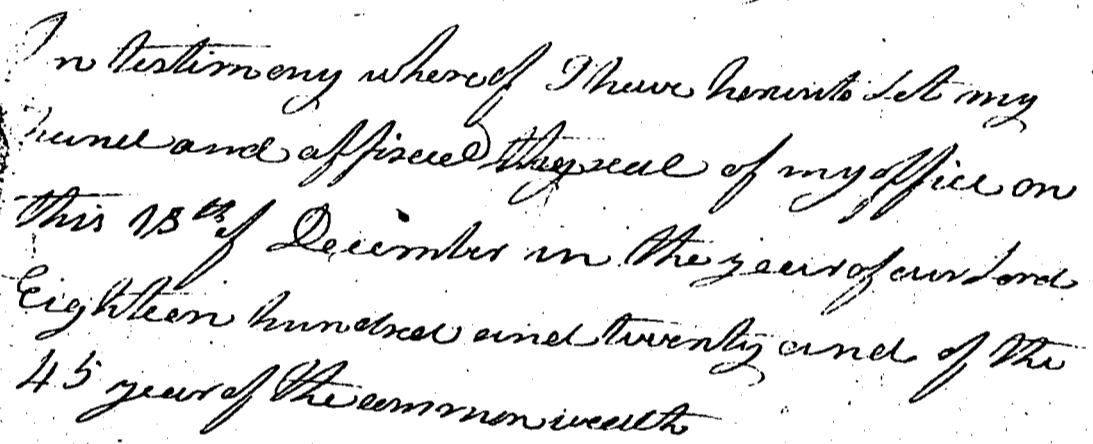 In testimony whereof I have hereunto set my
hand and affixed the seal of my office on
this 13th of December in the year of our Lord
Eighteen hundred and twenty and of the
45 year of the commonwealth